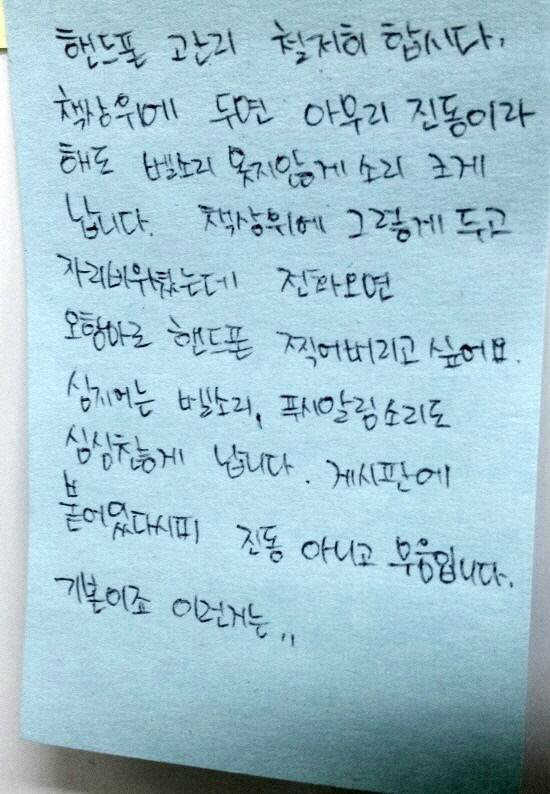 핸드폰 관리 철저히 합시다.
책상위에 두면 아무리 진동이라
해도 벨소리 못지않게 소리 크게
납니다. 책상위에 그렇게 두고
자리비워놨는데 전화오면
오함마로 핸드폰 찍어버리고 싶어요.
심지어는 벨소리, 푸시알림소리도
심심찮게 납니다. 게시판에
붙어있다시피 진동 아니고 무음입니다.
기본이죠 이런거는,,